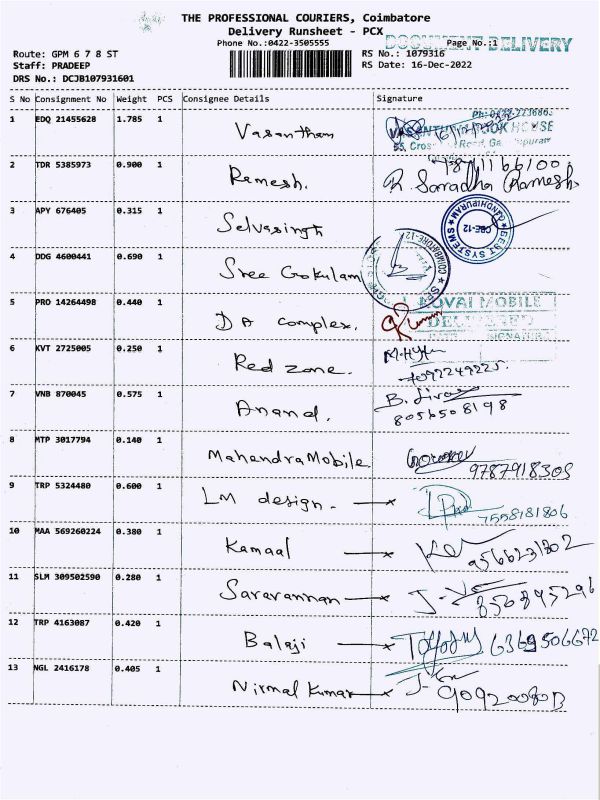 THE PROFESSIONAL COURIERS, Coimbatore
Delivery Runsheet - PCX
Phone No.:0422-3505555
DOCUMENT DELIVERY
Page No.:1
Route: GPM 6 7 8 ST
RS No.: 1079316
Staff: PRADEEP
RS Date: 16-Dec-2022
DRS No.: DCJB107931601
S No Consignment No Weight PCS Consignee Details Signature
1 EDQ 21455628 1.785 1 Vasantham
BOOK HOUSE
2 TDR 5385973 0.900 1 Ramesh. R Saradha (Ramesh)
3 APY 676405 0.315 1 Selvasingh
BEST SYSTEM ★ GANDHIPURAM ★ CBE-12
4 DDG 4600441 0.690 1 Sree Gokulam
COIMBATORE-12
5 PRO 14264498 0.440 1 DA complex.
KOVAI MOBILE
DELIVERED
6 KVT 2725005 0.250 1 Red zone.
7 VNB 870045 0.575 1 Anand. 8056508198
8 MTP 3017794 0.140 1 Mahendra Mobile 9787918305
9 TRP 5324480 0.600 1 LM design. 7558181806
10 MAA 569260224 0.380 1 Kamaal 9566231302
11 SLM 309502590 0.280 1 Saravannan
12 TRP 4163087 0.420 1 Balaji 6369506672
13 NGL 2416178 0.405 1 Nirmal Kumar